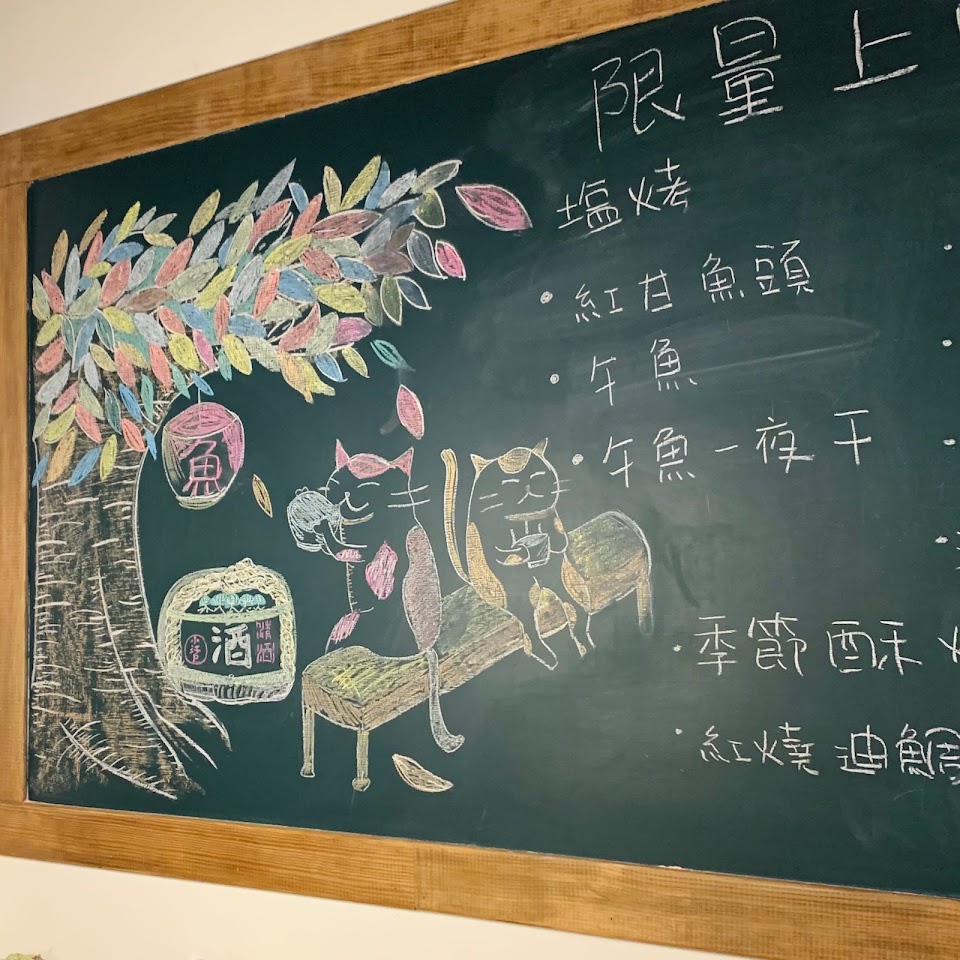 限量上
塩烤
• 紅甘魚頭
• 午魚
• 午魚一夜干
• 季節酥
• 紅燒迪鯛
魚
酒
清酒